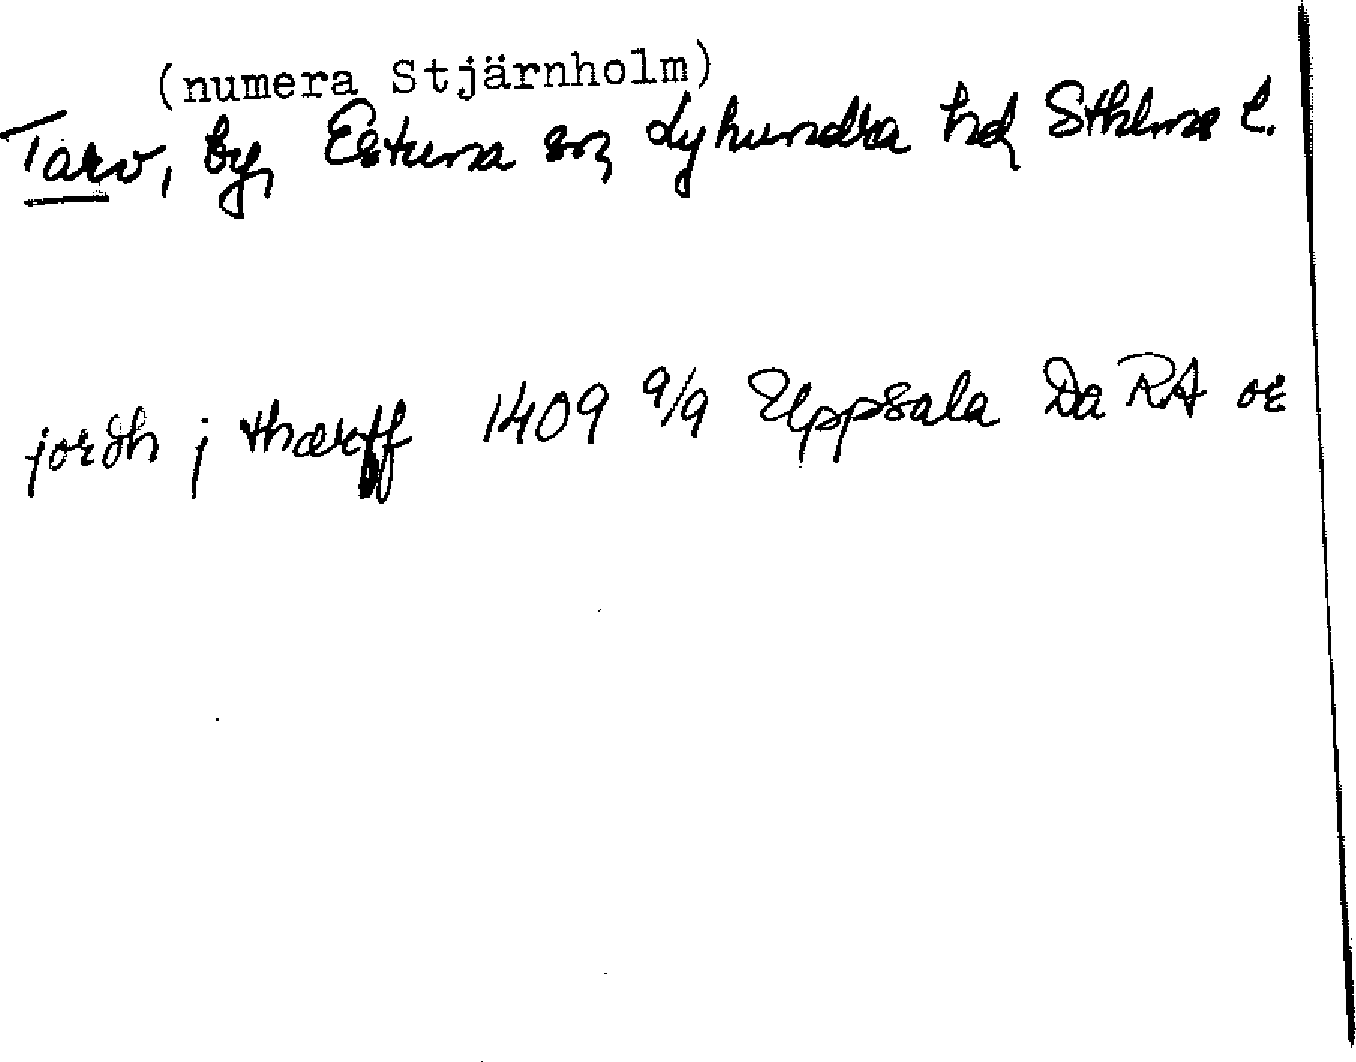 (numera Stjärnholm)
Tarv, by, Estuna sn, Lyhundra hd, Sthlms l.
jordh j thærff 1409 9/9 Uppsala Da RA or